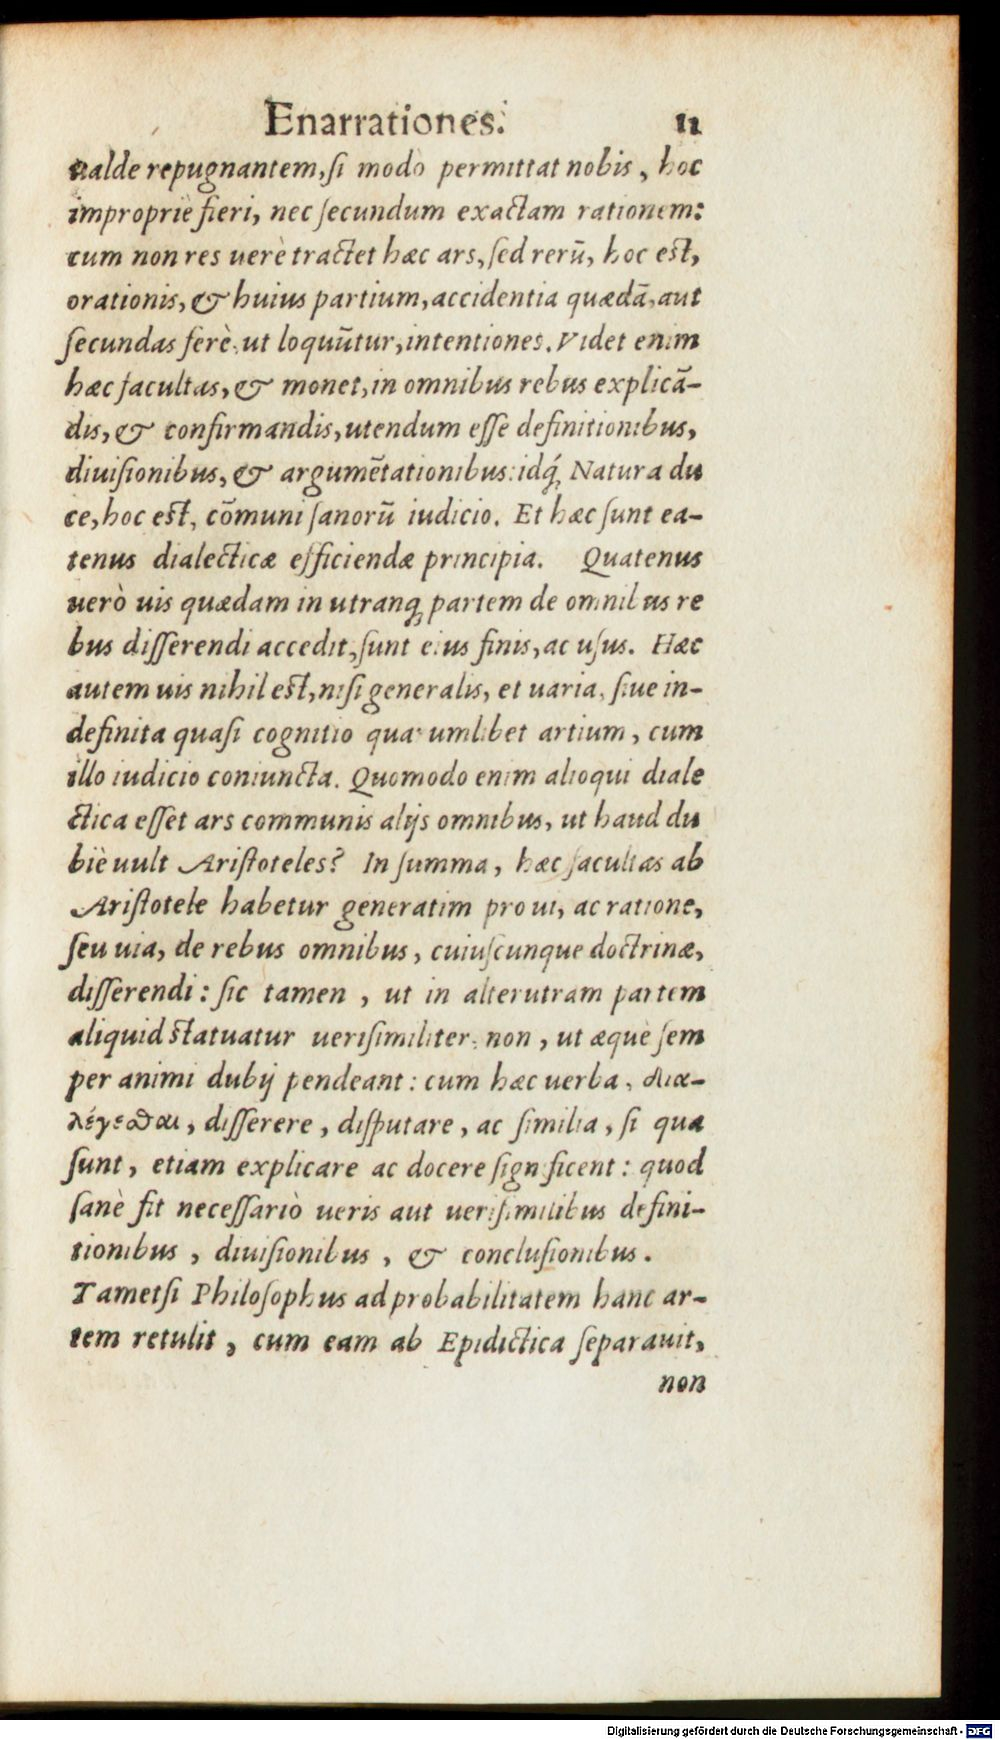 Enarrationes. 11
ualde repugnantem, si modo permittat nobis, hoc
impropriè fieri, nec secundum exactam rationem:
cum non res uerè tractet hæc ars, sed rerū, hoc est,
orationis, & huius partium, accidentia quædā, aut
secundas ferè, ut loquūtur, intentiones. Videt enim
hæc facultas, & monet, in omnibus rebus explicā-
dis, & confirmandis, utendum esse definitionibus,
diuisionibus, & argumētationibus: idq́; Natura du
ce, hoc est, cōmuni sanorū iudicio. Et hæc sunt ea-
tenus dialecticæ efficiendæ principia. Quatenus
uerò uis quædam in utranq; partem de omnibus re
bus disserendi accedit, sunt eius finis, ac usus. Hæc
autem uis nihil est, nisi generalis, et uaria, siue in-
definita quasi cognitio quarumlibet artium, cum
illo iudicio coniuncta. Quomodo enim alioqui diale
ctica esset ars communis alijs omnibus, ut haud du
biè uult Aristoteles? In summa, hæc facultas ab
Aristotele habetur generatim pro ui, ac ratione,
seu uia, de rebus omnibus, cuiuscunque doctrinæ,
disserendi: sic tamen, ut in alterutram partem
aliquid statuatur uerisimiliter: non, ut æquè sem
per animi dubij pendeant: cum hæc uerba, δια-
λέγεσθαι, disserere, disputare, ac similia, si qua
sunt, etiam explicare ac docere significent: quod
sanè fit necessariò ueris aut uerisimilibus defini-
tionibus, diuisionibus, & conclusionibus.
Tametsi Philosophus ad probabilitatem hanc ar-
tem retulit, cum eam ab Epidictica separauit,
non
Digitalisierung gefördert durch die Deutsche Forschungsgemeinschaft - DFG